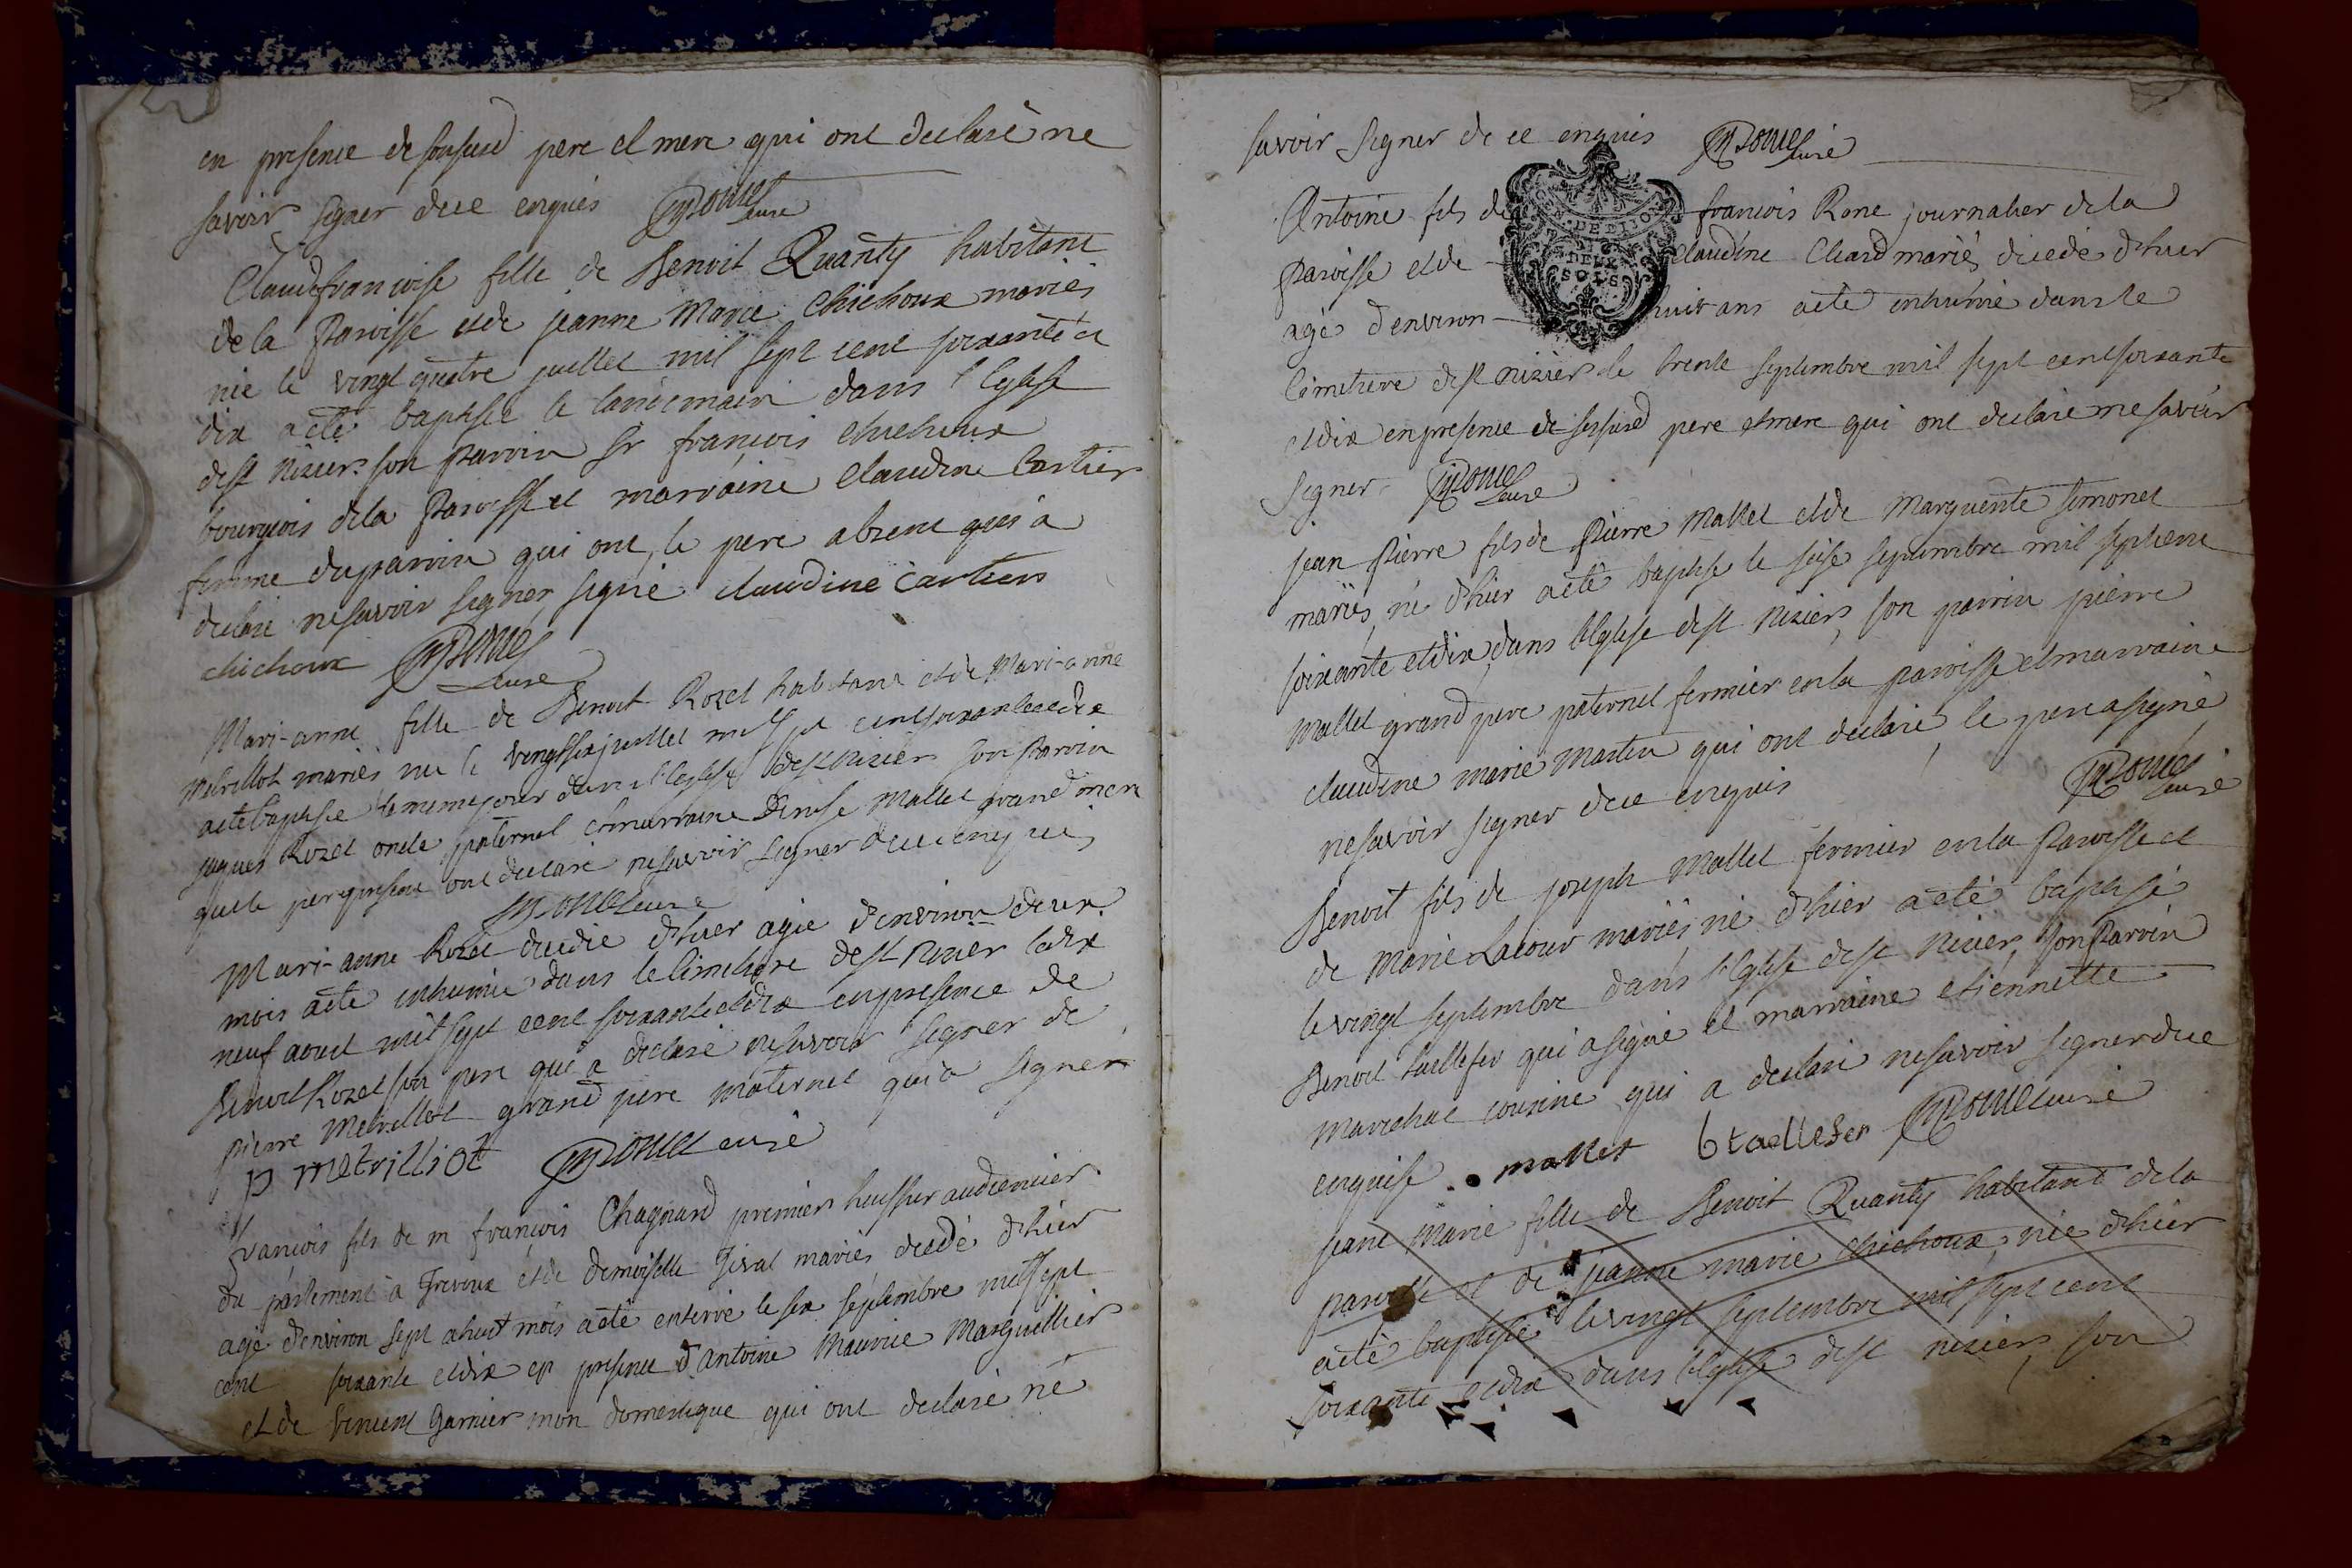 en presence de sousdt pere et mere qui ont declaré ne
savoir signer de ce enquis curé
Claude françoise fille de Benoit Quanty habitant
de la Paroisse et de jeanne Marie Chichoux mariés
née le vingt quatre juillet mil sept cent soixante et
dix a eté baptisée le landemain dans l'Eglise
de st Nizier son parrin Sr françois chichoux
bourgeois de la Paroisse et marraine Claudine Cartier
femme du parrin qui ont, le pere absent qui a
declaré ne savoir signer, signé claudine cartier
chichoux curé
Mari-anne fille de Benoit Rozet habitant et de Mari-anne
Metrillot mariés née le vingt six juillet mil sept cent soixante et dix
a eté baptisée le meme jour dans l'Eglise de st Nizier son Parrin
jaques Rozet oncle paternel et marraine Denise Mallet grand mere
que le pere present ont declaré ne savoir signer de ce enquis
curé
Mari-anne Rozet decedée d'hier agée d'environ deux
mois a eté inhumée dans le Cimetiere de st Nizier le dix
neuf aout mil sept cent soixante et dix en presence de
Benoit Rozet son pere qui a declaré ne savoir signer de
pierre Metrillot grand pere maternel qui a signer
p metrilliot curé
François fils de m françois Chagnard premier huissier audiencier
du parlement a Trevoux et de Demoiselle mariés decedé d'hier
agé d'environ sept a huit mois a eté enterré le six septembre mil sept
cent soixante et dix en presence d'Antoine Maurice Marguillier
et de Vincent Garnier mon domestique qui ont declaré ne
savoir signer de ce enquis curé
Antoine fils de françois Rone journalier de la
GEN. DE DIJON
DEUX
SOLS
Paroisse et de Claudine Chard mariés decedé d'hier
agé d'environ huit ans a eté inhumé dans le
Cimetiere de st nizier le trente septembre mil sept cent soixante
et dix en presence de sesusd pere et mere qui ont declaré ne savoir
signer curé
jean Pierre fils de Pierre Mallet et de Marguerite Simonet
mariés, né d'hier a eté baptisé le seise septembre mil sept cent
soixante et dix dans l'Eglise de st Nizier, son parrin pierre
Mallet grand pere paternel fermier en la paroisse et marraine
claudine marie Martin qui ont declaré, le pere a signé
ne savoir signer de ce enquis curé
Benoit fils de joseph Mallet fermier en la Paroisse et
de Marie Lacour mariés né d'hier a eté baptisé
le vingt septembre dans l'Eglise de st Nizier, son Parrin
Benoit taillefer qui a signé et marraine etiennette
Marechal cousine qui a declaré ne savoir signer de ce
enquise mallet b taillefer curé
jeane Marie fille de Benoit Quanty habitant de la
paroisse et de jeanne marie chichoux, née d'hier
a eté baptisée le vingt septembre mil sept cent
soixante et dix dans l'Eglise de st nizier, son